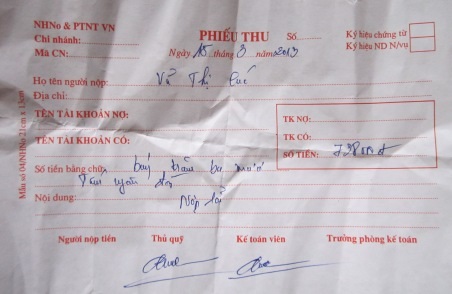 NHNo & PTNT VN
Chi nhánh:
Mã CN:
PHIẾU THU
Số
Ngày 15 tháng 3 năm 2013
Ký hiệu chứng từ
Ký hiệu ND N/vụ
Họ tên người nộp: Vũ Thị
Địa chỉ:
TÊN TÀI KHOẢN NỢ:
TÊN TÀI KHOẢN CÓ:
TK NỢ:
TK CÓ:
SỐ TIỀN:
Số tiền bằng chữ: bảy trăm ba mươi
đồng
Nội dung: Nộp lãi
Người nộp tiền Thủ quỹ Kế toán viên Trưởng phòng kế toán
Mẫu số 04/NHNo 21cm x 13cm